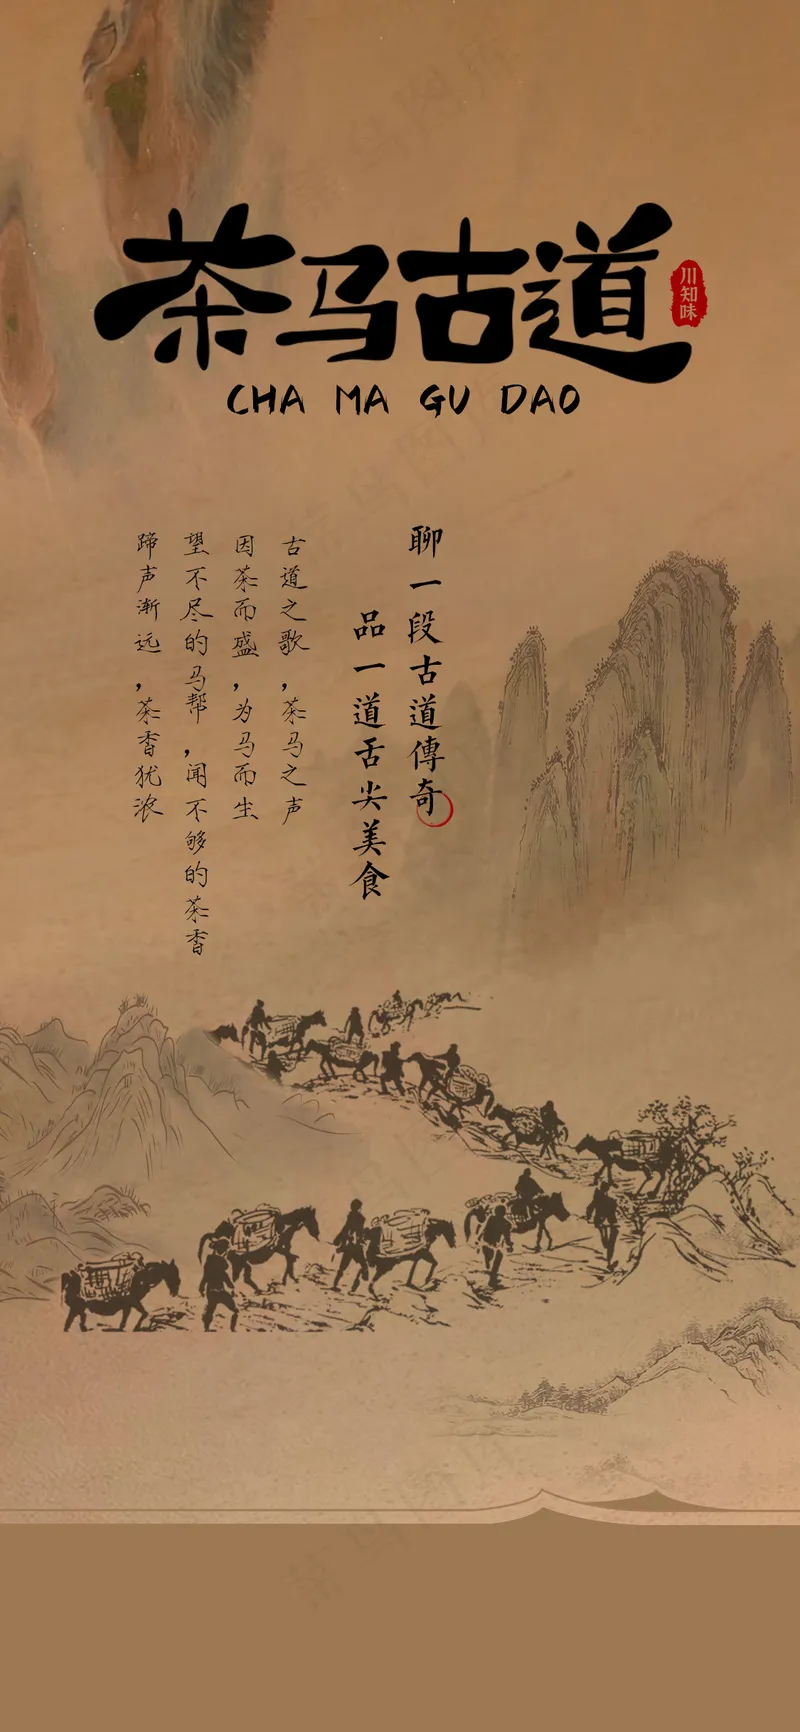 茶马古道
川知味
CHA MA GU DAO
聊一段古道傳奇
品一道舌尖美食
古道之歌，茶马之声
因茶而盛，为马而生
望不尽的马帮，闻不够的茶香
蹄声渐远，茶香犹浓